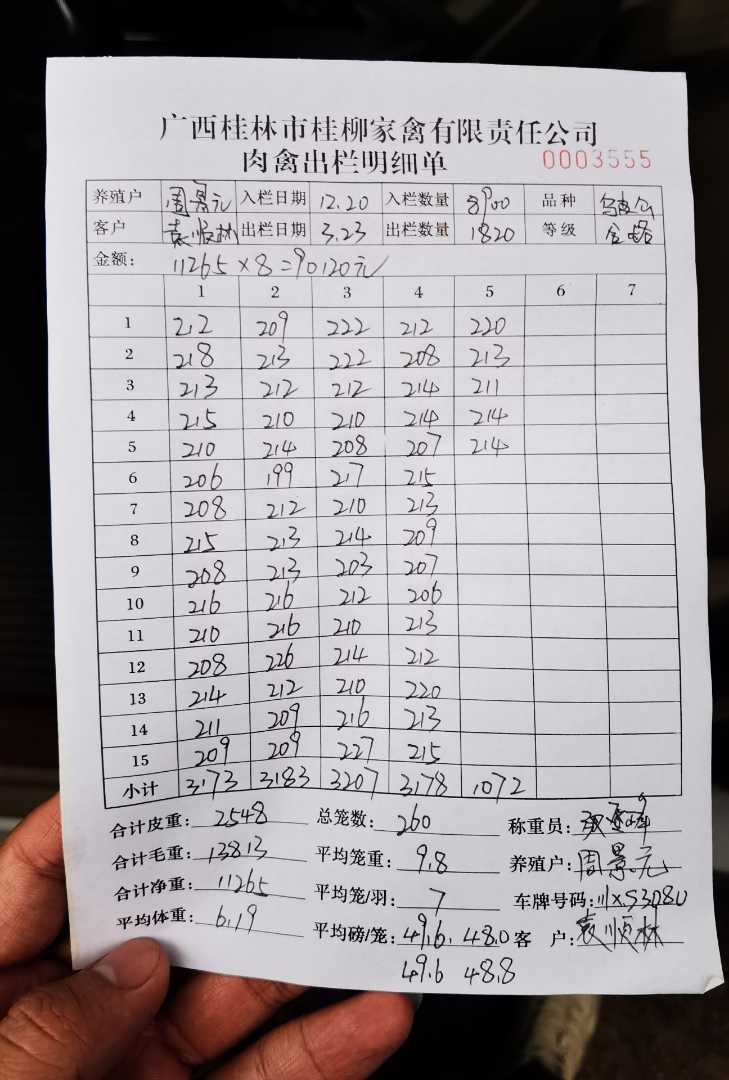 广西桂林市桂柳家禽有限责任公司
肉禽出栏明细单 0003555
养殖户 周景元 入栏日期 12.20 入栏数量 8900 品种
客户 袁顺林 出栏日期 3.23 出栏数量 1820 等级 合格
金额: 11265×8=90120元
1 2 3 4 5 6 7
1 212 209 222 212 220
2 218 213 222 208 213
3 213 212 212 214 211
4 215 210 210 214 214
5 210 214 208 207 214
6 206 199 217 215
7 208 212 210 213
8 215 213 214 209
9 208 213 203 207
10 216 216 212 206
11 210 216 210 213
12 208 226 214 212
13 214 212 210 220
14 211 209 216 213
15 209 209 227 215
小计 3173 3183 3207 3178 1072
合计皮重: 2548 总笼数: 260 称重员:
合计毛重: 13813 平均笼重: 9.8 养殖户: 周景元
合计净重: 11265 平均笼/羽: 7 车牌号码: 川X93080
平均体重: 6.19 平均磅/笼: 49.6. 48.0 客 户: 袁顺林
49.6 48.8